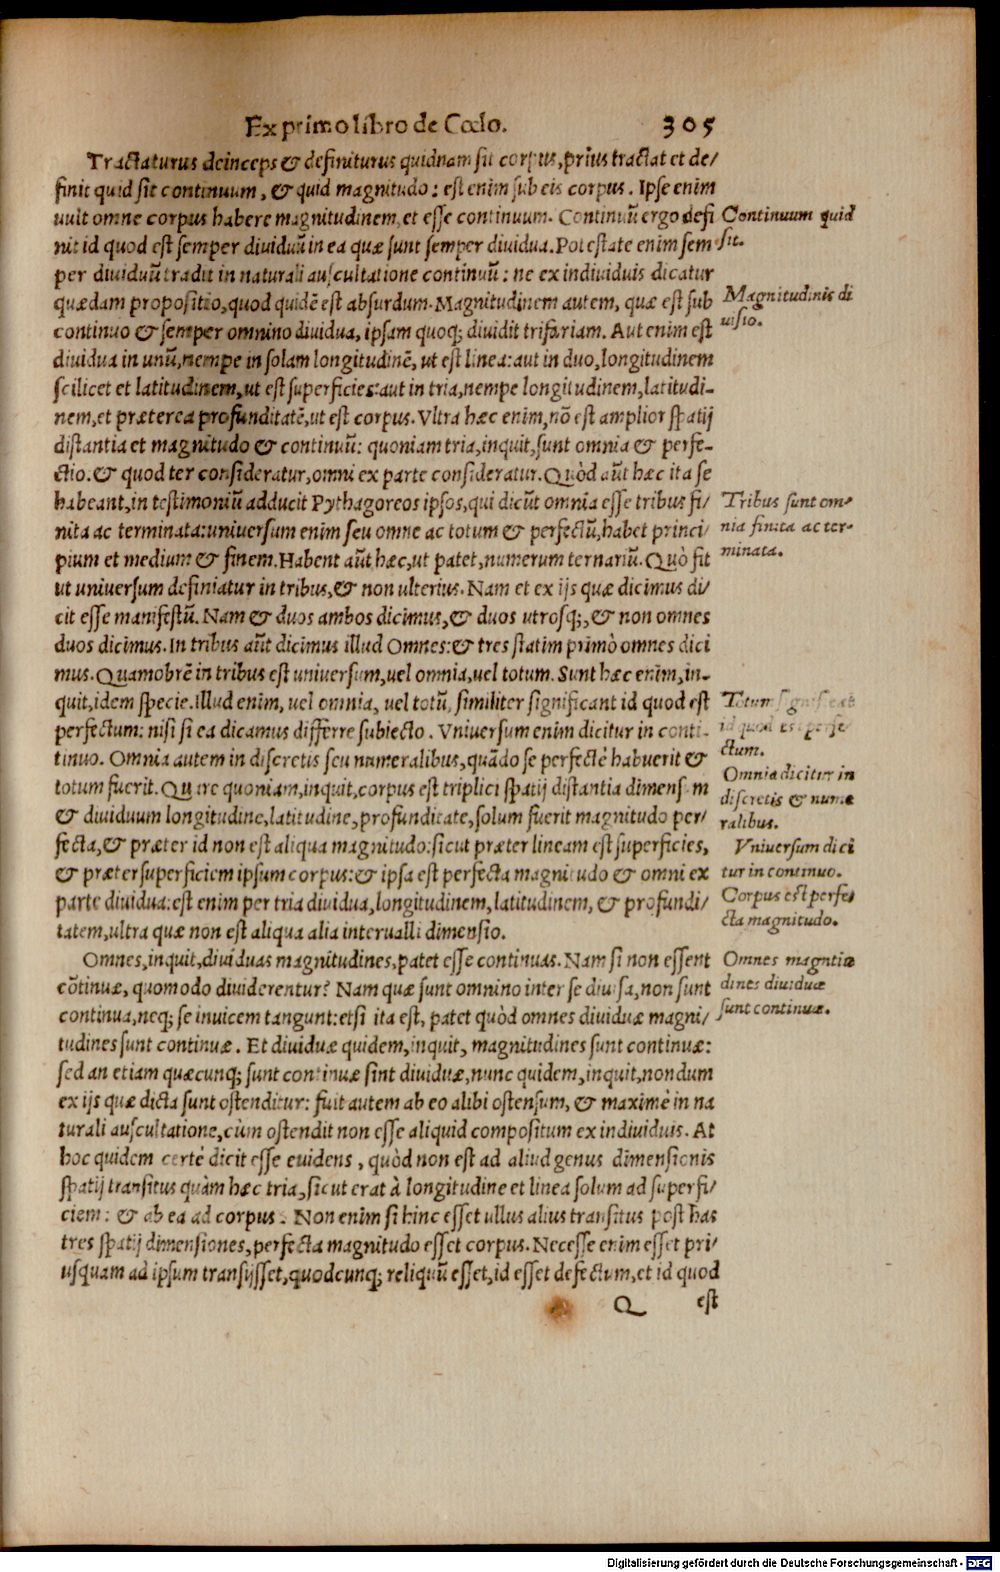 Ex primo libro de Cœlo. 305
Tractaturus deinceps & definiturus quidnam sit corpus, prius tractat et de/
finit quid sit continuum, & quid magnitudo: est enim sub eis corpus. Ipse enim
uult omne corpus habere magnitudinem, et esse continuum. Continuũ ergo defi
nit id quod est semper diuiduũ in ea quæ sunt semper diuidua. Potestate enim sem
per diuiduũ tradit in naturali auscultatione continuũ: ne ex indiuiduis dicatur
quædam propositio, quod quidẽ est absurdum. Magnitudinem autem, quæ est sub
continuo & semper omnino diuidua, ipsam quoq; diuidit trifariam. Aut enim est
diuidua in unũ, nempe in solam longitudinẽ, ut est linea: aut in duo, longitudinem
scilicet et latitudinem, ut est superficies: aut in tria, nempe longitudinem, latitudi-
nem, et præterea profunditatẽ, ut est corpus. Vltra hæc enim, nõ est amplior spatij
distantia et magnitudo & continuũ: quoniam tria, inquit, sunt omnia & perfe-
ctio. & quod ter consideratur, omni ex parte consideratur. Quòd aũt hæc ita se
habeant, in testimoniũ adducit Pythagoreos ipsos, qui dicũt omnia esse tribus fi/
nita ac terminata: uniuersum enim seu omne ac totum & perfectũ, habet princi/
pium et medium & finem. Habent aũt hæc, ut patet, numerum ternariũ. Quò fit
ut uniuersum definiatur in tribus, & non ulterius. Nam et ex ijs quæ dicimus di/
cit esse manifestũ. Nam & duos ambos dicimus, & duos utrosq;, & non omnes
duos dicimus. In tribus aũt dicimus illud Omnes: & tres statim primò omnes dici
mus. Quamobrẽ in tribus est uniuersum, uel omnia, uel totum. Sunt hæc enim, in-
quit, idem specie. illud enim, uel omnia, uel totũ, similiter significant id quod est
perfectum: nisi si ea dicamus differre subiecto. Vniuersum enim dicitur in conti-
tinuo. Omnia autem in discretis seu numeralibus, quãdo se perfectè habuerit &
totum fuerit. Quare quoniam, inquit, corpus est triplici spatij distantia dimensum
& diuiduum longitudine, latitudine, profunditate, solum fuerit magnitudo per/
fecta, & præter id non est aliqua magnitudo: sicut præter lineam est superficies,
& præter superficiem ipsum corpus: & ipsa est perfecta magnitudo & omni ex
parte diuidua: est enim per tria diuidua, longitudinem, latitudinem, & profundi/
tatem, ultra quæ non est aliqua alia interualli dimensio.
Omnes, inquit, diuiduas magnitudines, patet esse continuas. Nam si non essent
cõtinuæ, quomodo diuiderentur? Nam quæ sunt omnino inter se diuisa, non sunt
continua, neq; se inuicem tangunt: etsi ita est, patet quòd omnes diuiduæ magni/
tudines sunt continuæ. Et diuiduæ quidem, inquit, magnitudines sunt continuæ:
sed an etiam quæcunq; sunt continuæ sint diuiduæ, nunc quidem, inquit, nondum
ex ijs quæ dicta sunt ostenditur: fuit autem ab eo alibi ostensum, & maximè in na
turali auscultatione, cùm ostendit non esse aliquid compositum ex indiuiduis. At
hoc quidem certè dicit esse euidens, quòd non est ad aliud genus dimensionis
spatij transitus quàm hæc tria, sicut erat à longitudine et linea solum ad superfi/
ciem: & ab ea ad corpus. Non enim si hinc esset ullus alius transitus post has
tres spatij dimensiones, perfecta magnitudo esset corpus. Necesse enim esset pri/
usquam ad ipsum transijsset, quodcunq; reliquũ esset, id esset defectum, et id quod
Q est
Continuum quid
sit.
Magnitudinis di
uisio.
Tribus sunt om-
nia finita ac ter-
minata.
Totum significat
id quod est perfe-
ctum.
Omnia dicitur in
discretis & nume
ralibus.
Vniuersum dici
tur in continuo.
Corpus est perfe/
cta magnitudo.
Omnes magnitu
dines diuiduæ
sunt continuæ.
Digitalisierung gefördert durch die Deutsche Forschungsgemeinschaft - DFG